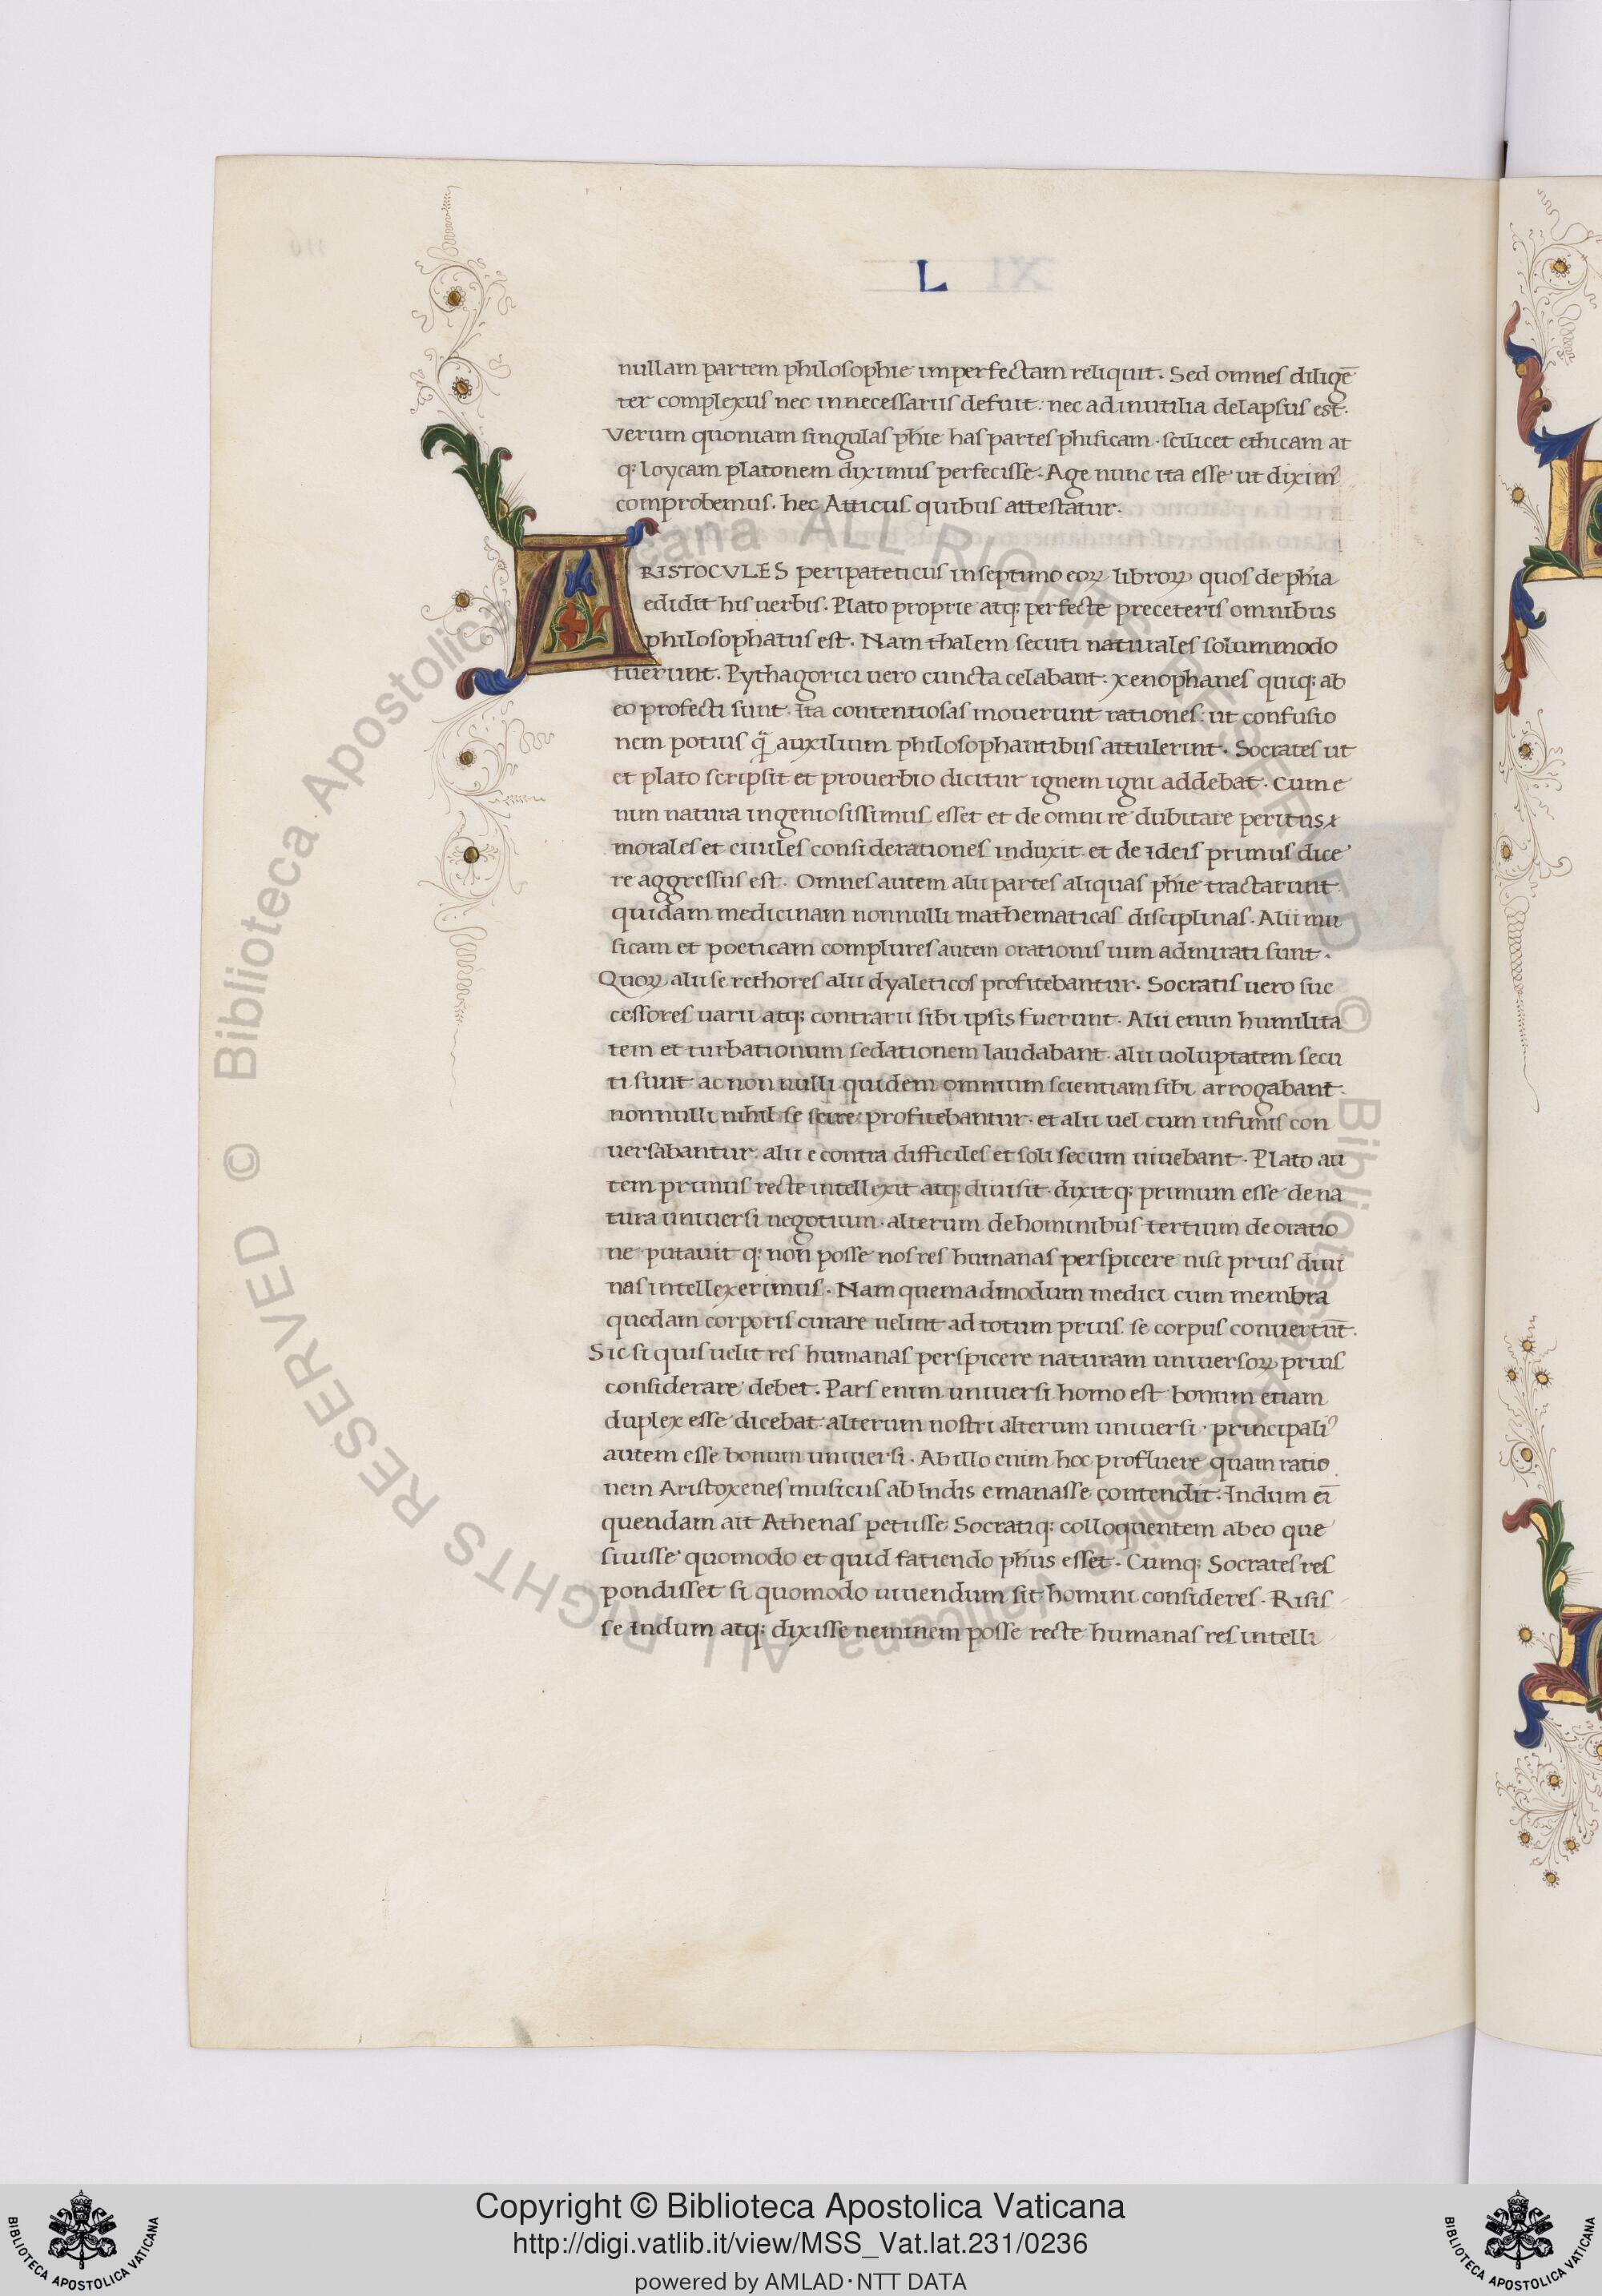 L
nullam partem philosophie imperfectam reliquit. Sed omnes diligē
ter complexus nec in necessariis defuit: nec ad inutilia delapsus est.
Verum quoniam singulas phīe has partes phisicam. scilicet ethicam at
q: loycam platonem diximus perfecisse. Age nunc ita esse ut dixim⁹
comprobemus. hec Atticus. quibus attestatur.
ARISTOCVLES peripateticus in septimo eoꝝ libroꝝ quos de phīa
edidit his uerbis. Plato proprie atq: perfecte preceteris omnibus
philosophatus est. Nam thalem secuti naturales solummodo
fuerunt. Pythagorici uero cuncta celabant: xenophanes quiq: ab
eo profecti sunt. Ita contentiosas mouerunt rationes: ut confusio
nem potius q̄ auxilium philosophantibus attulerint. Socrates ut
et plato scripsit et prouerbio dicitur ignem igni addebat. Cum e
nim natura ingeniosissimus esset et de omni re dubitare peritus
morales et ciuiles considerationes induxit. et de ideis primus dice
re aggressus est. Omnes autem alii partes aliquas phīe tractarunt
quidam medicinam nonnulli mathematicas disciplinas. Alii mu
sicam et poeticam complures autem orationis uim admirati sunt.
Quoꝝ alii se rethores alii dyaleticos profitebantur. Socratis uero suc
cessores uarii atq: contrarii sibi ipsis fuerunt. Alii enim humilita
tem et turbationum sedationem laudabant. alii uoluptatem secu
ti sunt ac non nulli quidem omnium scientiam sibi arrogabant.
nonnulli nihil se scire: profitebantur. et alii uel cum infimis con
uersabantur. alii e contra difficiles et soli secum uiuebant. Plato au
tem primus recte intellexit atq: diuisit. dixitq: primum esse de na
tura uniuersi negotium. alterum de hominibus tertium de oratio
ne putauitq: non posse nos res humanas perspicere nisi prius diui
nas intellexerimus. Nam quemadmodum medici cum membra
quedam corporis curare uelint ad totum prius se corpus conuertūt.
Sic si quis uelit res humanas perspicere naturam uniuersoꝝ prius
considerare debet. Pars enim uniuersi homo est bonum etiam
duplex esse dicebat: alterum nostri alterum uniuersi. principali⁹
autem esse bonum uniuersi. Ab illo enim hoc profluere quam ratio
nem Aristoxenes musicus ab Indis emanasse contendit: Indum eī
quendam ait Athenas petiisse Socratiq: colloquentem ab eo que
siuisse quomodo et quid fatiendo phūs esset. Cumq: Socrates res
pondisset si quomodo uiuendum sit homini consideres. Risis
se Indum atq: dixisse neminem posse recte humanas res intelli
© Biblioteca Apostolica Vaticana ALL RIGHTS RESERVED
© Biblioteca Apostolica Vaticana ALL RIGHTS RESERVED
Copyright © Biblioteca Apostolica Vaticana
http://digi.vatlib.it/view/MSS_Vat.lat.231/0236
powered by AMLAD·NTT DATA
BIBLIOTECA APOSTOLICA VATICANA
BIBLIOTECA APOSTOLICA VATICANA